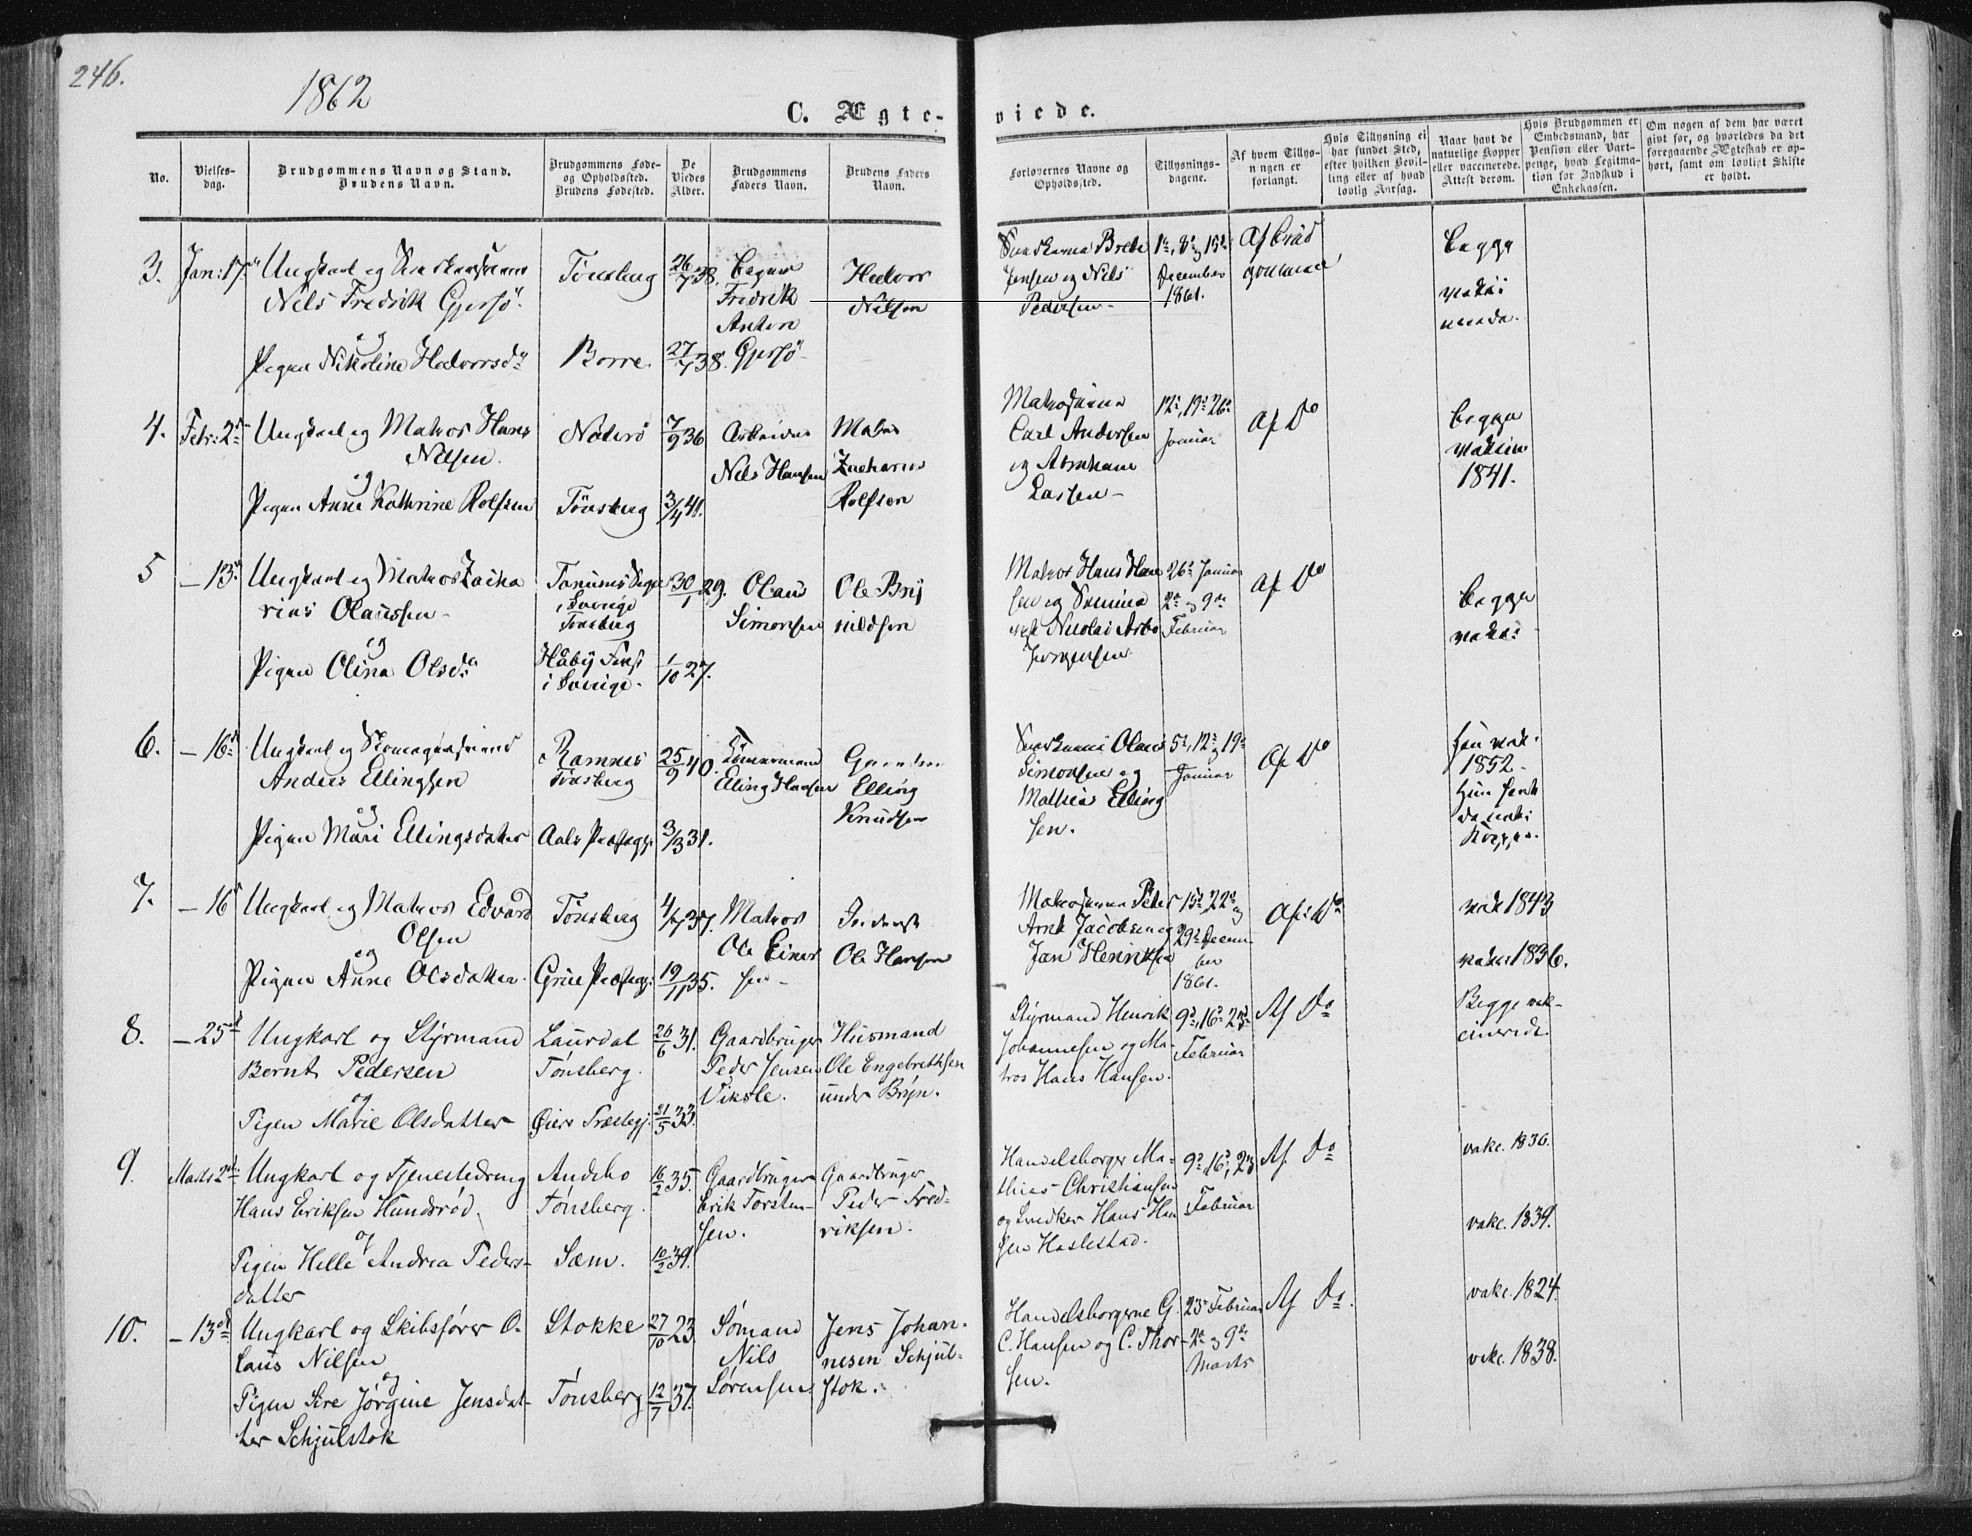 246.
1862
C. Ægte-
viede.
No.
Vielses-
dag.
Brudgommens Navn og Stand.
Brudens Navn.
Brudgommens Føde-
og Opholdssted.
Brudens Fødested.
De
Viedes
Alder.
Brudgommens
Faders Navn.
Brudens Faders
Navn.
Forlovernes Navne og
Opholdssted.
Tillysnings-
dagene.
Af hvem Tillys-
ningen er
forlangt.
Hvis Tillysning ei
har fundet Sted,
efter hvilken Bevil-
ling eller af hvad
lovlig Aarsag.
Naar havt de
naturlige Kopper
eller vaccinerede.
Attest derom.
Hvis Brudgommen er
Embedsmand, har
Pension eller Vart-
penge, hvad Legitima-
tion for Indskud i
Enkekassen.
Om nogen af dem har været
givt før, og hvorledes da det
foregaaende Ægteskab er op-
hørt, samt om lovligt Skifte
er holdt.
3.
Jan: 17.
Ungkarl og
Nils Fredrik Gjersö
og
Pigen Nikoline Hedvorsd.
Tönsberg
Borre.
26/7 38.
27/7 38.
Fredrik
Anton
Gjersö
Nilsen
Jensen og Nils
Pedersen
1ste, 8de og 15de
December
1861.
Af Brud
gommen
begge
4.
Febr: 2
Ungkarl og Matros Hans
Nilsen
og
Pigen Anne Kathrine Rolfsen
Nøterö
Tönsberg
7/9 36
3/4 41.
Arbeider
Nils Hansen
Zacharias
Rolfsen
Carl Andersen
og Abraham
Larsen
12te, 19de 26de
Januar
Af Do
begge
1841.
5
— 13.
Ungkarl og Matros Zacha
rias Olaussen
og
Pigen Olina Olsd.
i Sverige
Tönsberg
i Sverige.
30/1 29.
1/10 27.
Olaus
Simonsen
Ole Brÿ
nildsen
Matros Hans Han
sen og
Nicolai Arbo
Jörgensen
26de Januar
2den og 9de
Februar
Af Do
begge
6.
— 16
Ungkarl og
Anders Ellingsen
og
Pigen Mari Ellingsdatter
Ramnes
Tönsberg
25/9 40.
3/3 31.
Tömmermand
Elling Hansen
Elling
Knudsen
Olaus
Simonsen og
Mathias Elling
sen.
5te, 12te og 19de
Januar
Af Do
1852
7.
— 16
Ungkarl og Matros Edvard
Olsen
og
Pigen Anne Olsdatter
Tönsberg
Grue Præstegj.
4/7 37.
19/11 35.
Matros
Ole Einer
sen
Ole Hansen
Peter
Arnt Jacobsen og
Jan Henriksen
15de, 22de og
29de Decem
ber
1861.
Af Do
vak 1843
vak: 1836.
8.
— 25de
Ungkarl og Styrmand
Bernt Pedersen
og
Pigen Marie Olsdatter
Laurdal
Tønsberg.
Øiers Præstegj.
26/6 31.
21/5 33.
Gaardbruger
Peder Jensen
Viksle.
Husmand
Ole Engebrethsen
under Brÿn.
Styrmand Henrik
Johannesen og Ma-
tros Hans Hansen.
9de, 16de 23de
Februar
Af Do
Begge vak-
cinerede.
9.
Marts 2den
Ungkarl og Tjenestedreng
Hans Eriksen Hundsrød.
og
Pigen Helle Andrea Peders-
datter
Andebo
Tønsberg.
Sæm.
16/2 35.
10/2 39.
Gaardbruger
Erik Torsten-
sen.
Gaardbruger
Peder Fred-
riksen.
Handelsborger Ma-
thias Christiansen
og Snedker Hans Han
sen Haslestad.
9de, 16de, 23
Februar
Af Do
vakc. 1836.
vakc. 1839.
10.
— 13de
Ungkarl og Skibsfører O-
laus Nilsen
og
Pigen Sire Jørgine Jensdat-
ter Schjulstok
Stokke
Tønsberg
27/10 23
12/7 37.
Sømand
Nils
Sørensen
Jens Johan-
nesen Schjul-
stok.
Handelsborgerne G.
C. Hansen og C. Thor-
sen.
23 Februar
2den og 9de
Marts
Af Do.
vakc. 1824.
vakc. 1838.